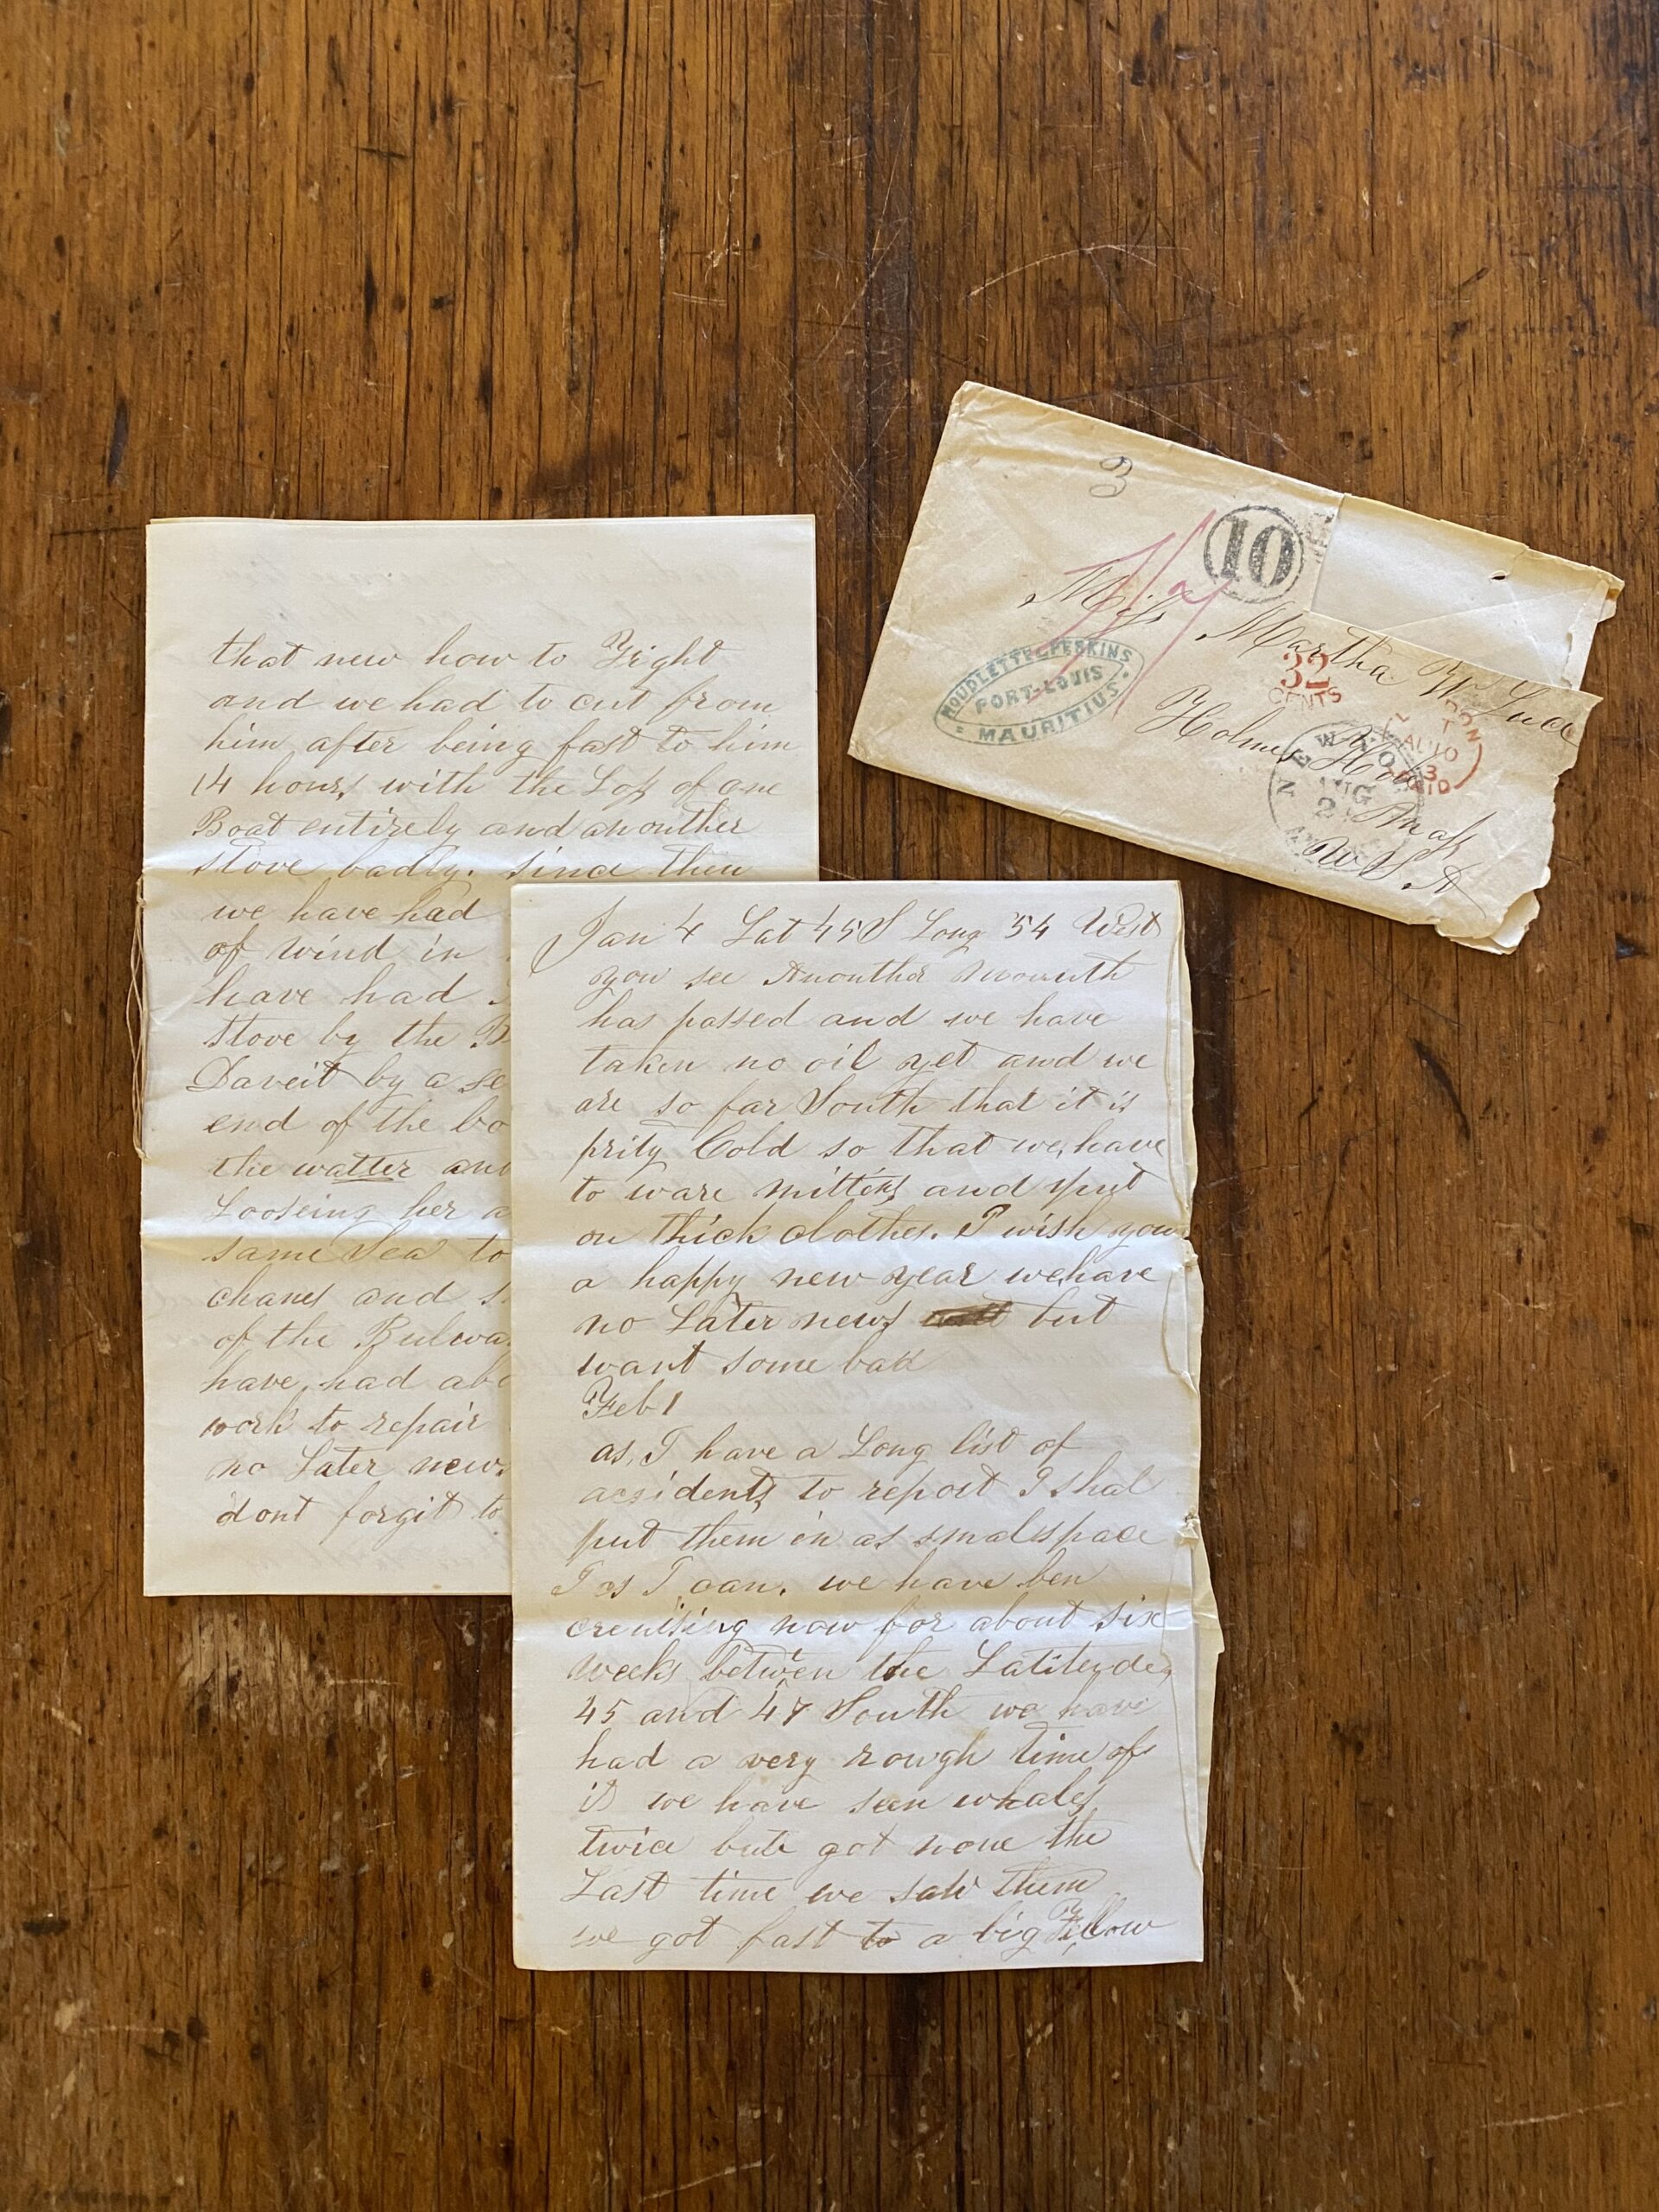 that new how to Fight
and we had to cut from
him after being fast to him
14 hours with the Loss of one
Boat entirely and anouther
stove badly. since then
we have had
of wind in
have had
stove by the B
Daveit by a se
end of the bo
the watter and
Looseing her a
same Sea to
chanes and s
of the Bulwa
have had abo
work to repair
no Later news
dont forgit to
Jan 4 Lat 45 S Long 54 West
you see Anouther Mounth
has passed and we have
taken no oil yet and we
are so far South that it is
prity Cold so that we have
to ware mittens and put
on thick clothes. I wish you
a happy new year we have
no Later news but
want some bad
Feb 1
as I have a Long list of
acsidents to report I shal
put them in as smal space
I as I can. we have ben
creuising now for about six
weeks betwen the Latitudes
45 and 47 South we have
had a very rough time of
it we have seen whales
twice but got none the
Last time we saw them
we got fast to a big Fellow
3
10
Miss Martha W Luce
Holmes Hole
Mass
U S A
32
CENTS
HOUDLETTE & PERKINS
PORT-LOUIS
MAURITIUS
NEW YORK
AUG
LONDON
AU 10
PAID